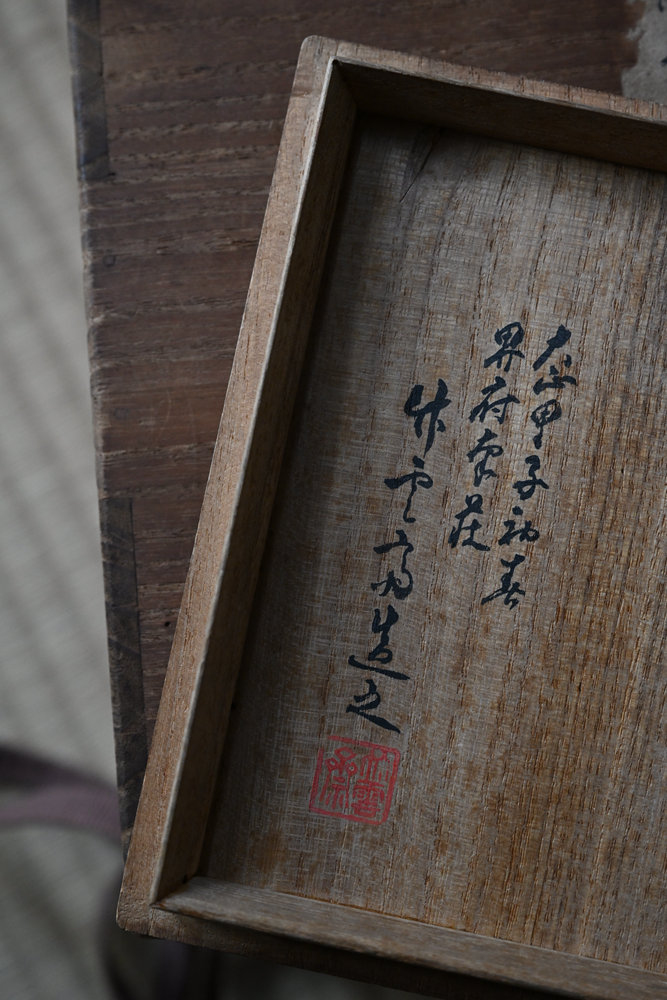 大正甲子初春
界府東荘
竹雲斎造之